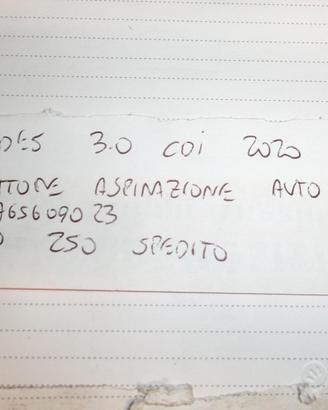 DES 3.0 CDI 2020
TTORE ASPIRAZIONE AUTO
765609023
250 SPEDITO